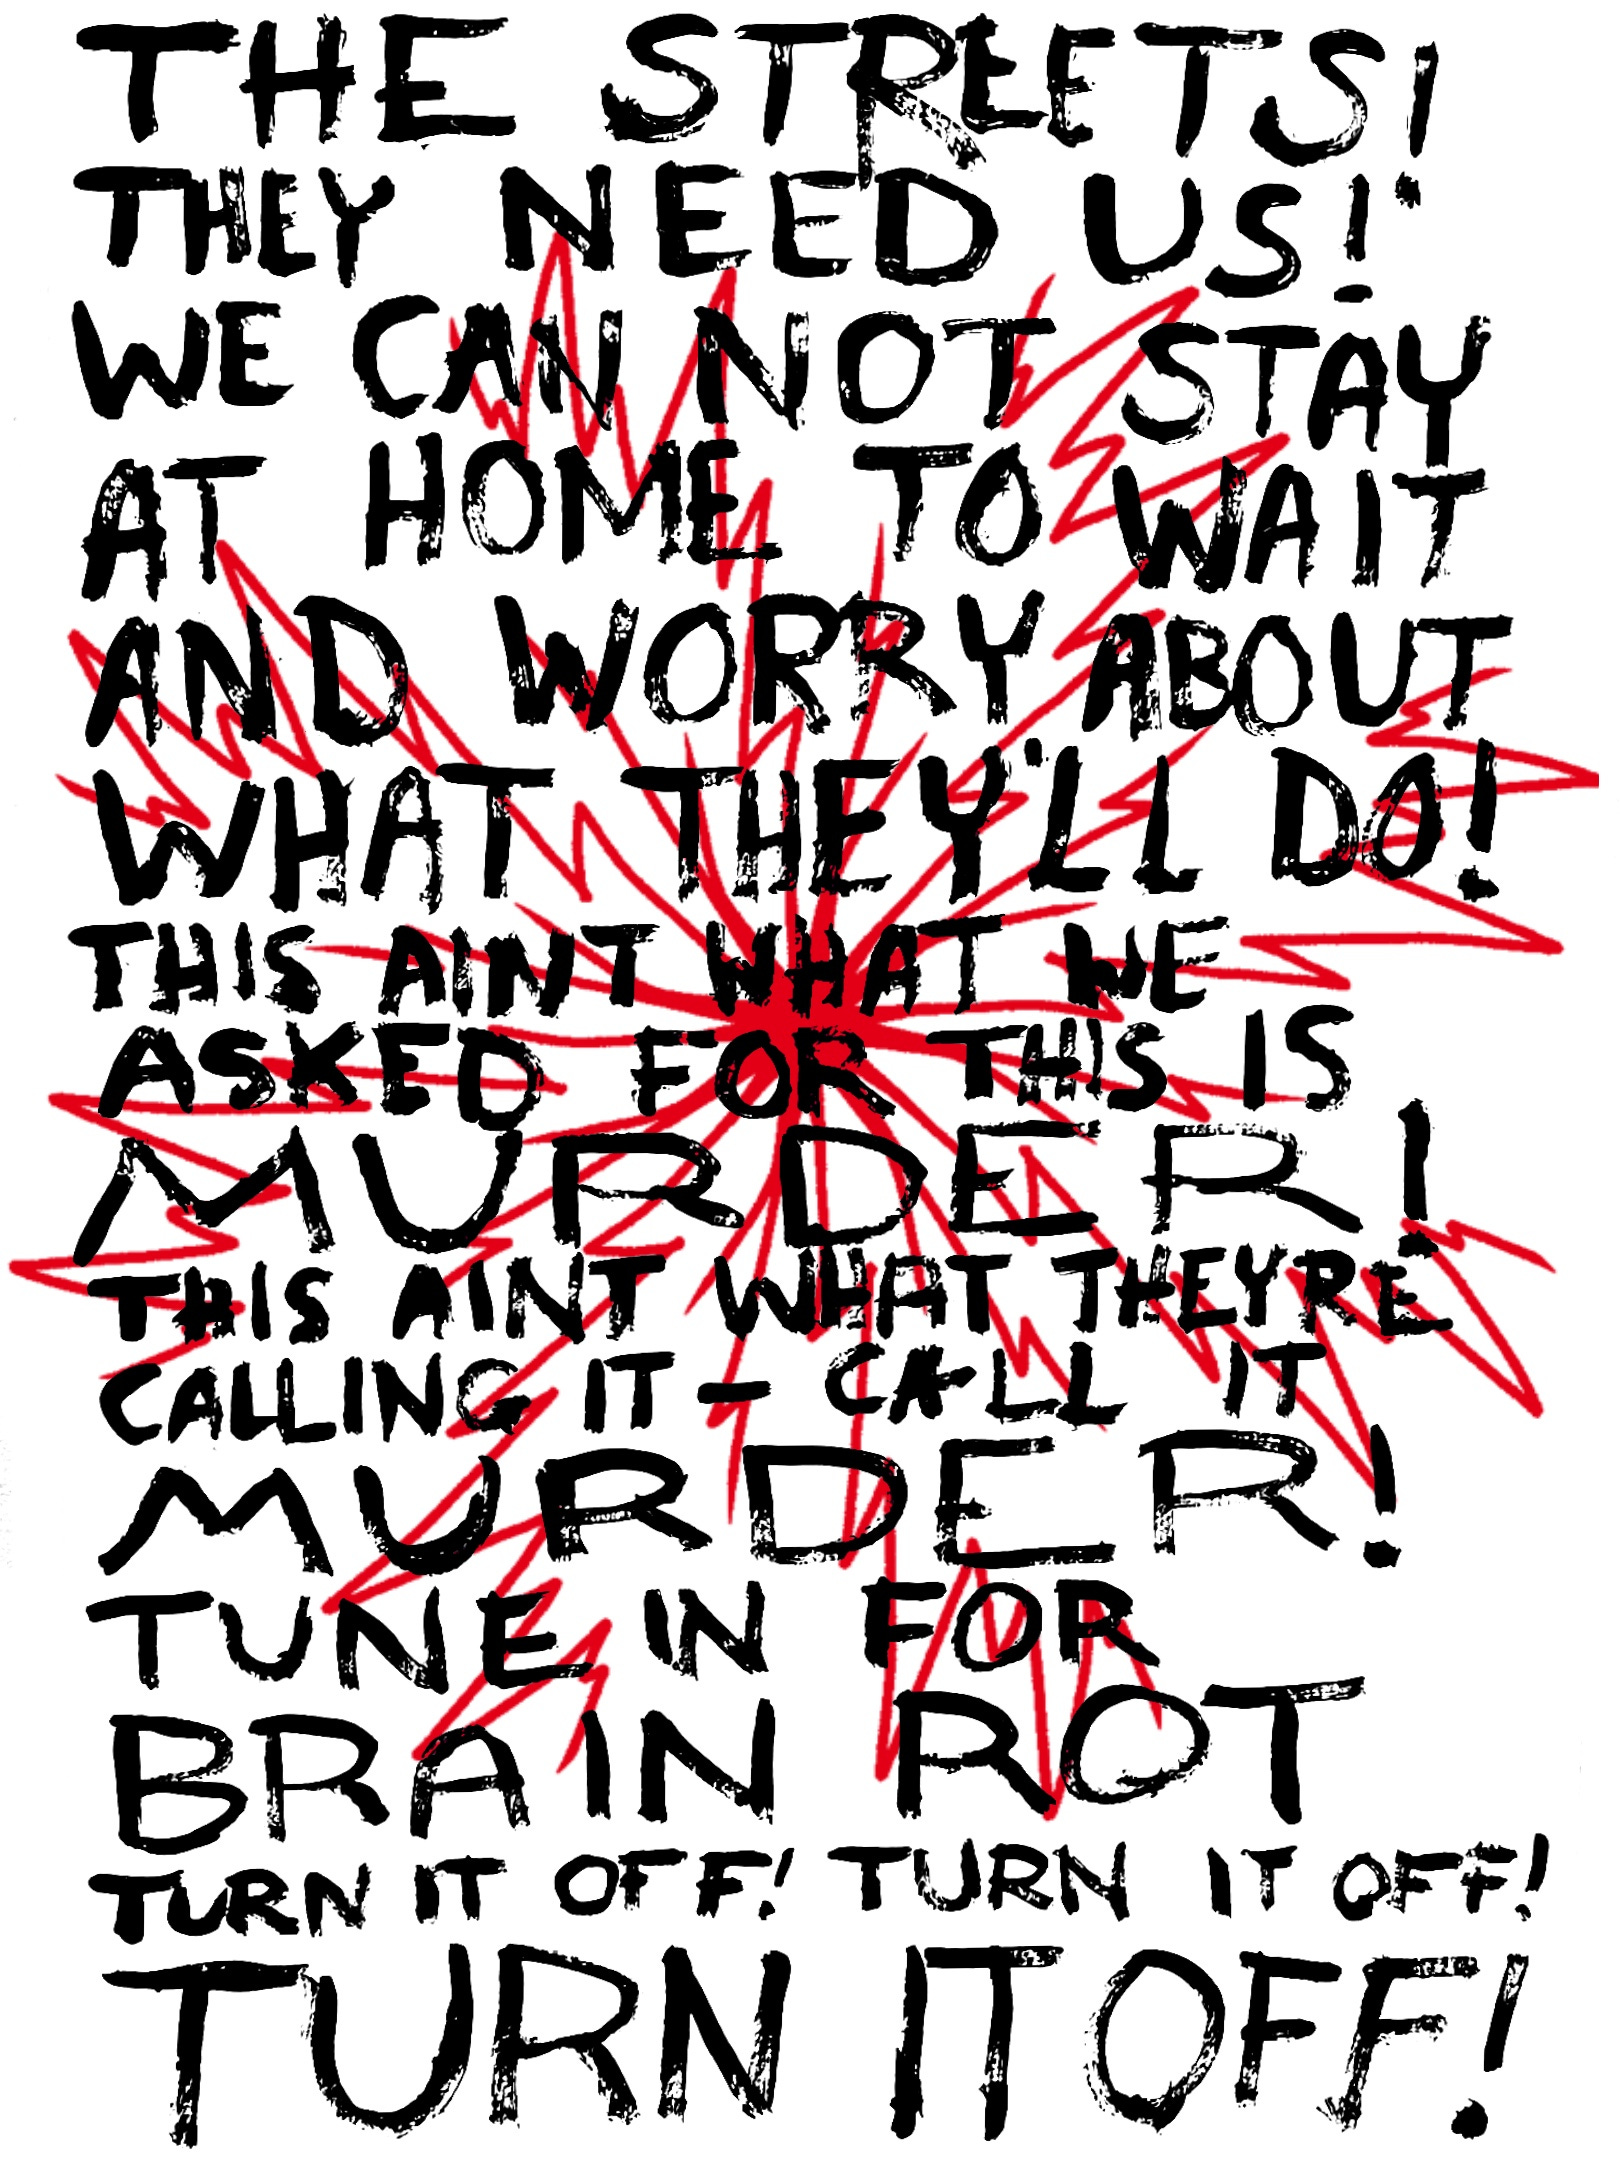 THE STREETS!
THEY NEED US!
WE CAN NOT STAY
AT HOME TO WAIT
AND WORRY ABOUT
WHAT THEY'LL DO!
THIS AINT WHAT WE
ASKED FOR THIS IS
MURDER!
THIS AINT WHAT THEYRE
CALLING IT - CALL IT
MURDER!
TUNE IN FOR
BRAIN ROT
TURN IT OFF! TURN IT OFF!
TURN IT OFF!